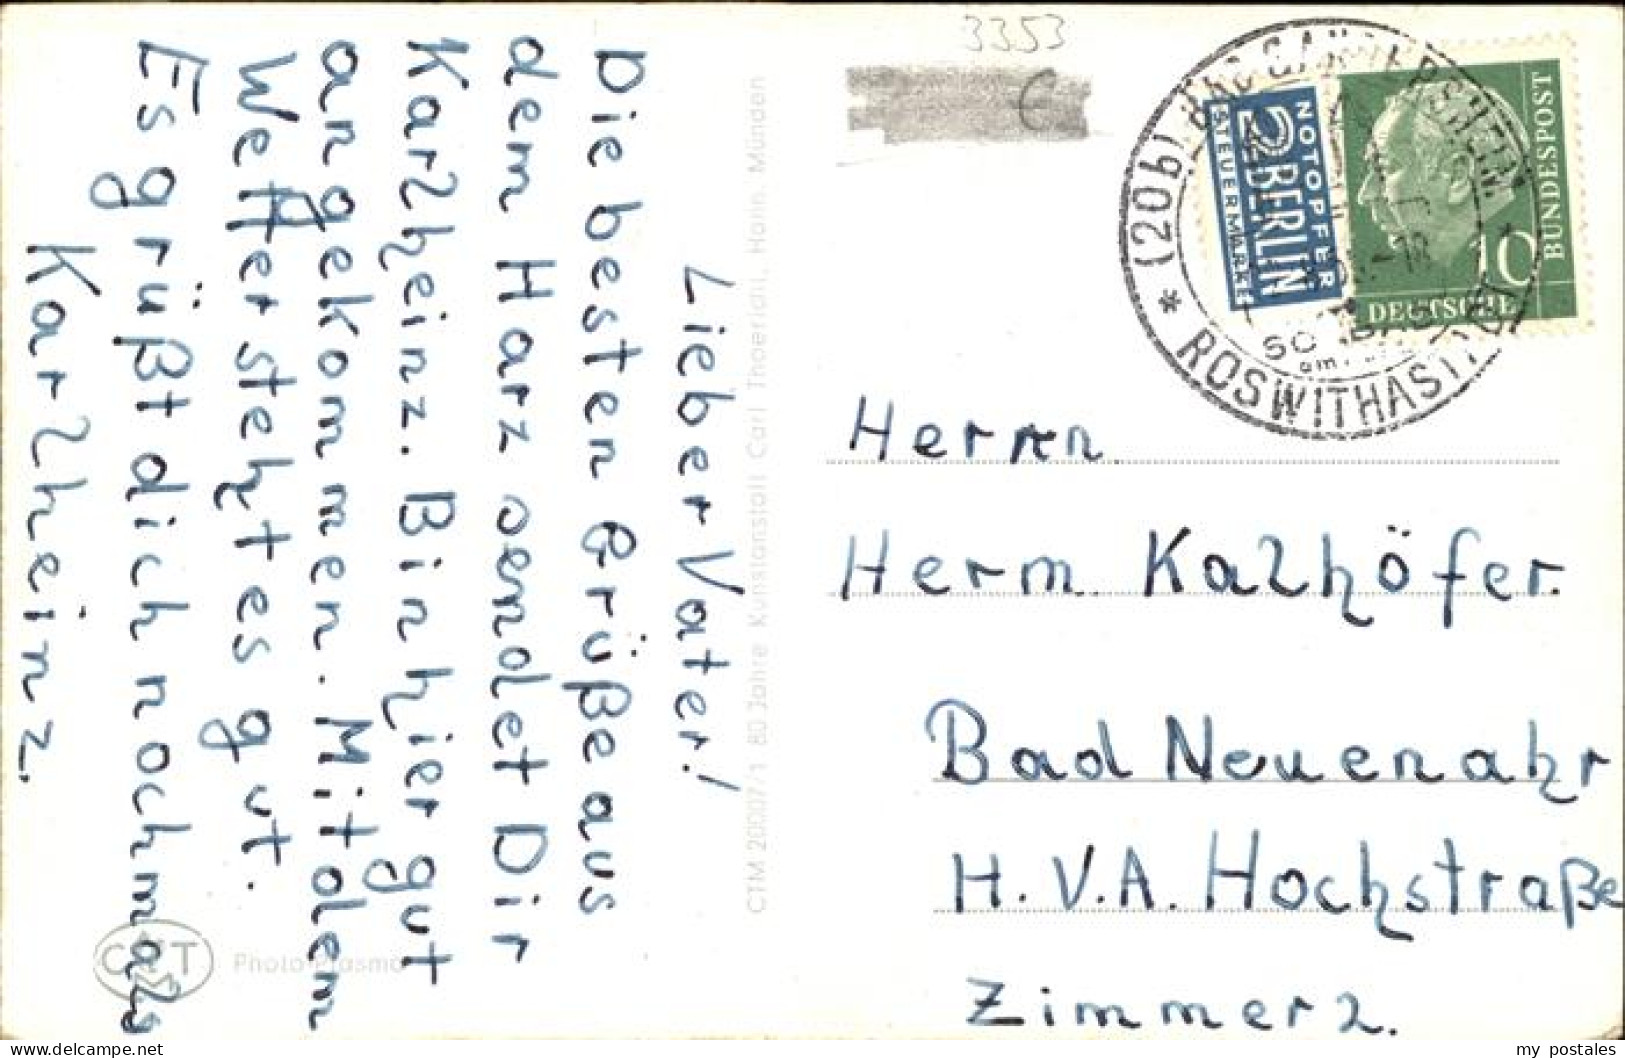 3353
Lieber Vater!
Die besten Grüße aus
dem Harz sendet Dir
Karlheinz. Bin hier gut
angekommen. Mit dem
Wetter steht es gut.
Es grüßt dich nochmals
Karlheinz.
CTM 20007/1 80 Jahre Kunstanstalt Carl Thoericht, Hann. Münden
Photo Plasma
(20b) BAD GANDERSHEIM
* ROSWITHASTADT
NOTOPFER
2 BERLIN
STEUERMARKE
10
DEUTSCHE
BUNDESPOST
Herrn
Herm. Kalhöfer.
Bad Neuenahr
H.V.A. Hochstraße
Zimmer 2.
my postales